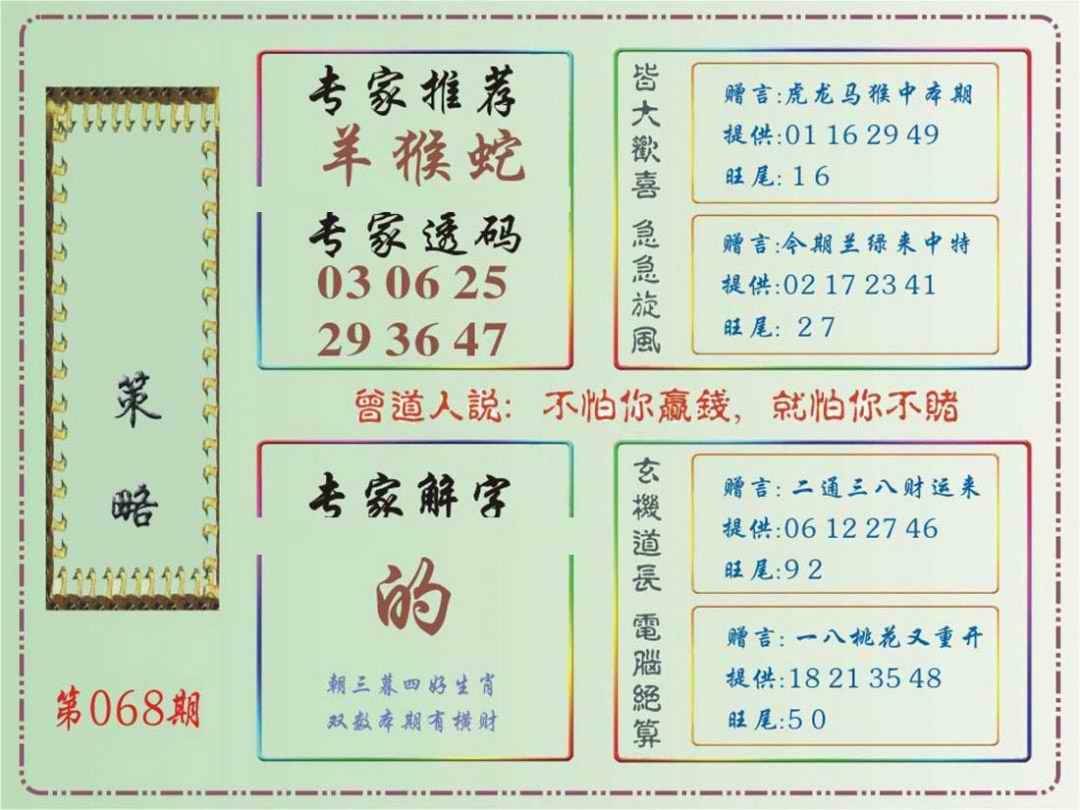 策略
第068期
专家推荐
羊猴蛇
专家透码
03 06 25
29 36 47
皆大歡喜
赠言:虎龙马猴中本期
提供:01 16 29 49
旺尾: 1 6
急急旋風
赠言:今期兰绿来中特
提供:02 17 23 41
旺尾: 2 7
曾道人説: 不怕你赢錢, 就怕你不賭
专家解字
的
朝三暮四好生肖
双数本期有横财
玄機道長
赠言: 二通三八财运来
提供:06 12 27 46
旺尾:9 2
電腦絕算
赠言: 一八桃花又重开
提供:18 21 35 48
旺尾:5 0